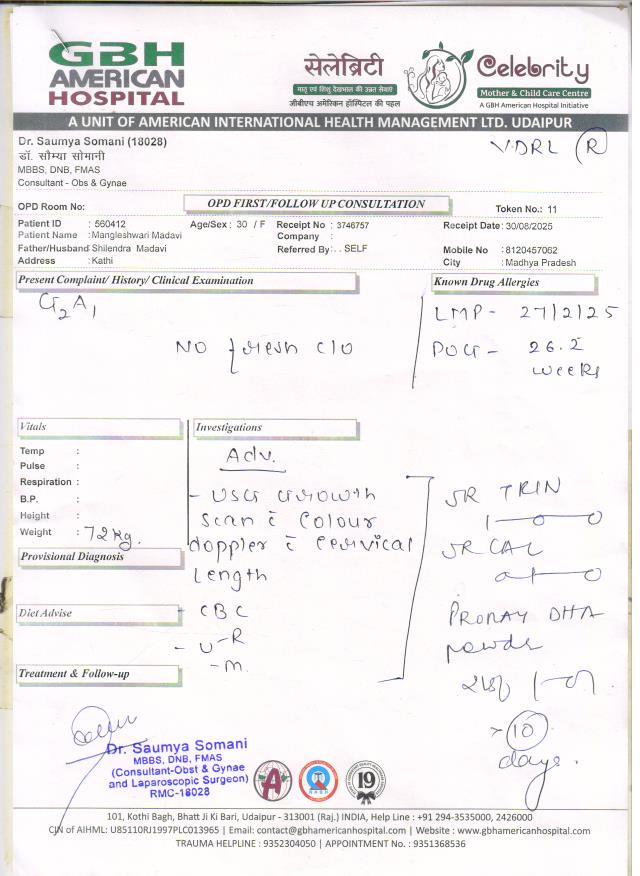 GBH
AMERICAN
HOSPITAL
सेलेब्रिटी
मातृ एवं शिशु देखभाल की उन्नत सेवाएं
जीबीएच अमेरिकन हॉस्पिटल की पहल
Celebrity
Mother & Child Care Centre
A GBH American Hospital Initiative
A UNIT OF AMERICAN INTERNATIONAL HEALTH MANAGEMENT LTD. UDAIPUR
Dr. Saumya Somani (18028)
डॉ. सौम्या सोमानी
MBBS, DNB, FMAS
Consultant - Obs & Gynae
VDRL (R)
OPD Room No:
OPD FIRST/FOLLOW UP CONSULTATION
Token No.: 11
Patient ID : 560412
Age/Sex : 30 / F
Receipt No : 3746757
Receipt Date: 30/08/2025
Patient Name : Mangleshwari Madavi
Company :
Father/Husband Shilendra Madavi
Referred By : . . SELF
Mobile No : 8120457062
Address : Kathi
City : Madhya Pradesh
Present Complaint/ History/ Clinical Examination
Known Drug Allergies
G2A1
LMP - 27/2/25
NO fresh c/o
POG - 26.2
weeks
Vitals
Investigations
Temp :
Pulse :
Respiration :
B.P. :
Height :
Weight : 72kg.
Provisional Diagnosis
Diet Advise
Treatment & Follow-up
Adv.
- USG Growth
scan c̄ Colour
doppler c̄ cervical
Length
- CBC
- U-R
- M.
TRIN
1-0-0
CAL
PRONAY DHA
powder
> 10
days.
Dr. Saumya Somani
MBBS, DNB, FMAS
(Consultant-Obst & Gynae
and Laparoscopic Surgeon)
RMC-18028
A
NABH
19
101, Kothi Bagh, Bhatt Ji Ki Bari, Udaipur - 313001 (Raj.) INDIA, Help Line : +91 294-3535000, 2426000
CIN of AIHML: U85110RJ1997PLC013965 | Email: contact@gbhamericanhospital.com | Website : www.gbhamericanhospital.com
TRAUMA HELPLINE : 9352304050 | APPOINTMENT No. : 9351368536